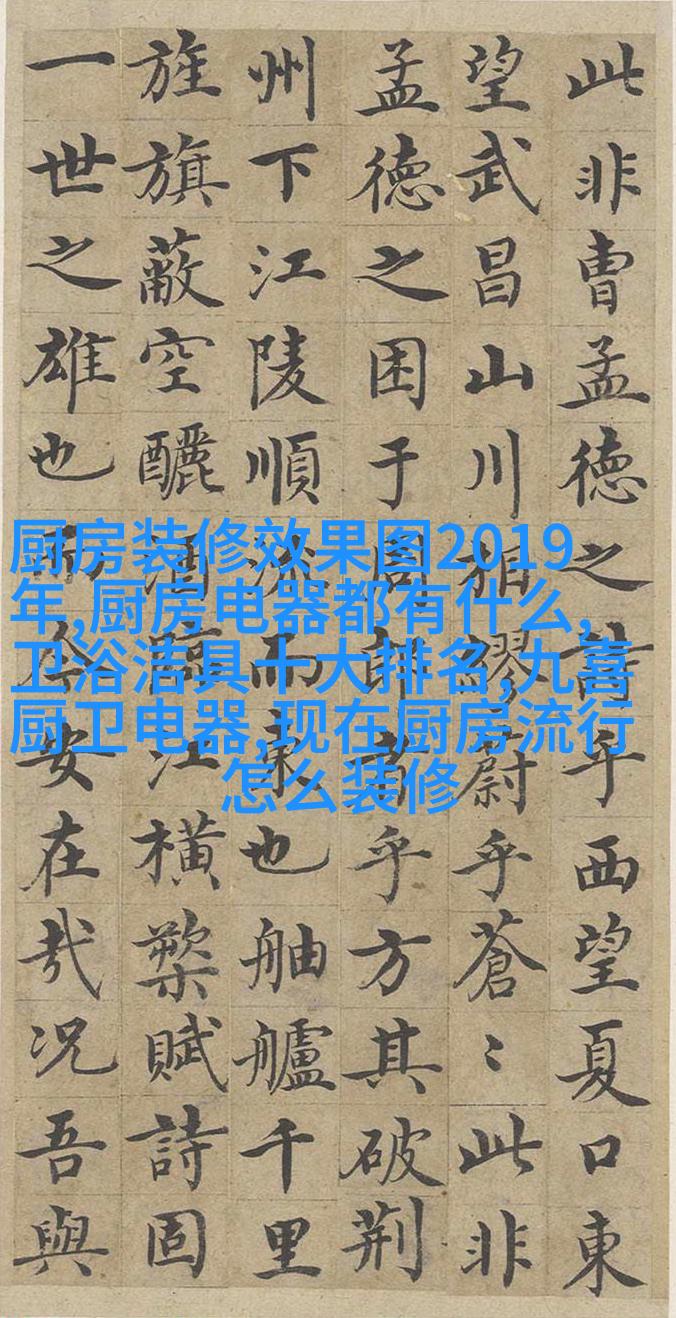 此非曹孟德之詩乎西望夏口東
望武昌山川相繆蔚乎蒼〻此非
孟德之困于周郎者乎方其破荆
州下江陵順流而東也舳艫千里
旌旗蔽空釃酒臨江横槊賦詩固
一世之雄也而今安在哉况吾與
厨房装修效果图2019
年,厨房电器都有什么,
卫浴洁具十大排名,九喜
厨卫电器,现在厨房流行
怎么装修